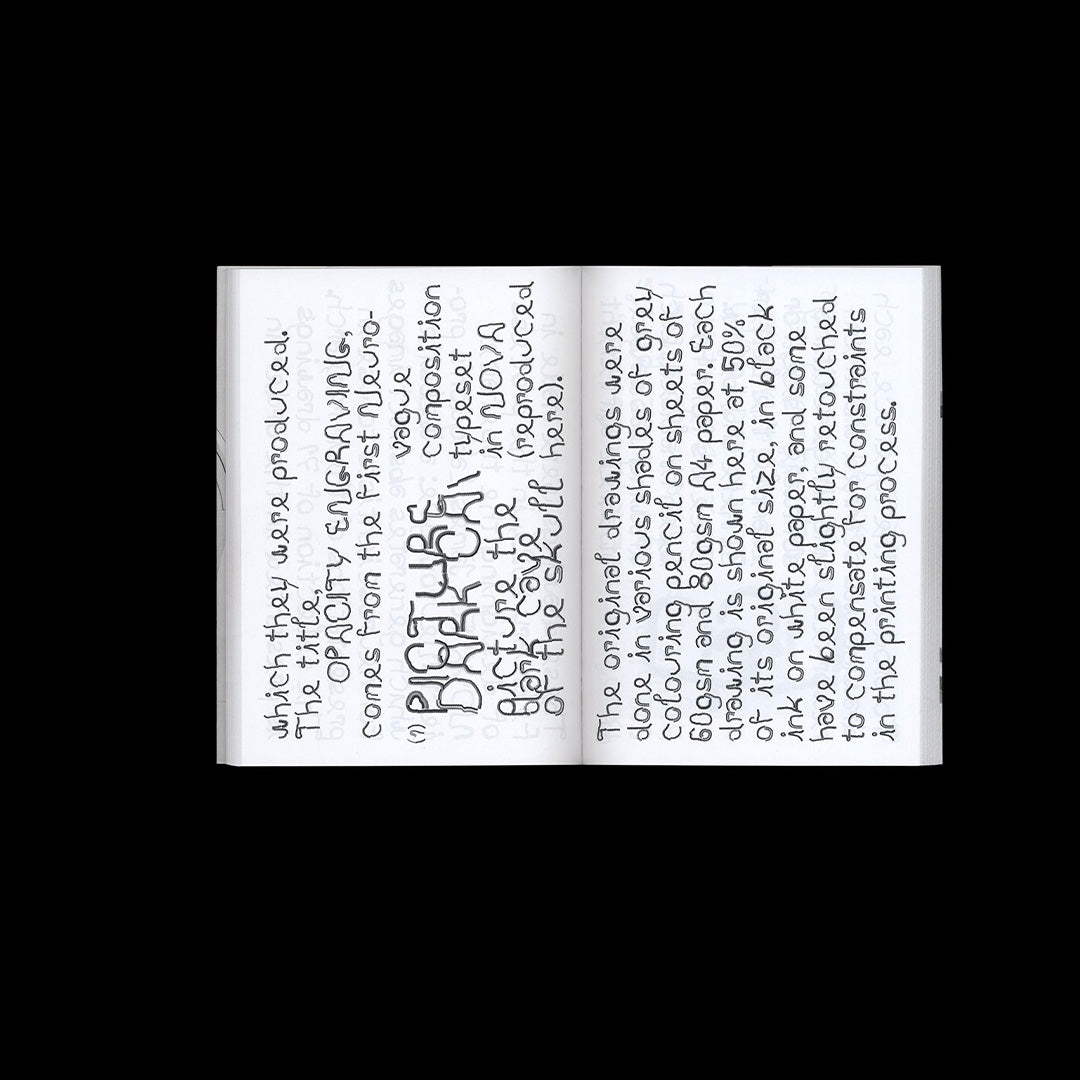 which they were produced.
The title,
OPACITY ENGRAVING,
comes from the first Neuro-
vague
composition
typeset
in NOVA
(reproduced
here).
(1)
PICTURE
DARK
Picture the
dark cave
of the skull
The original drawings were
done in various shades of grey
colouring pencil on sheets of
60gsm and 80gsm A4 paper. Each
drawing is shown here at 50%
of its original size, in black
ink on white paper, and some
have been slightly retouched
to compensate for constraints
in the printing process.